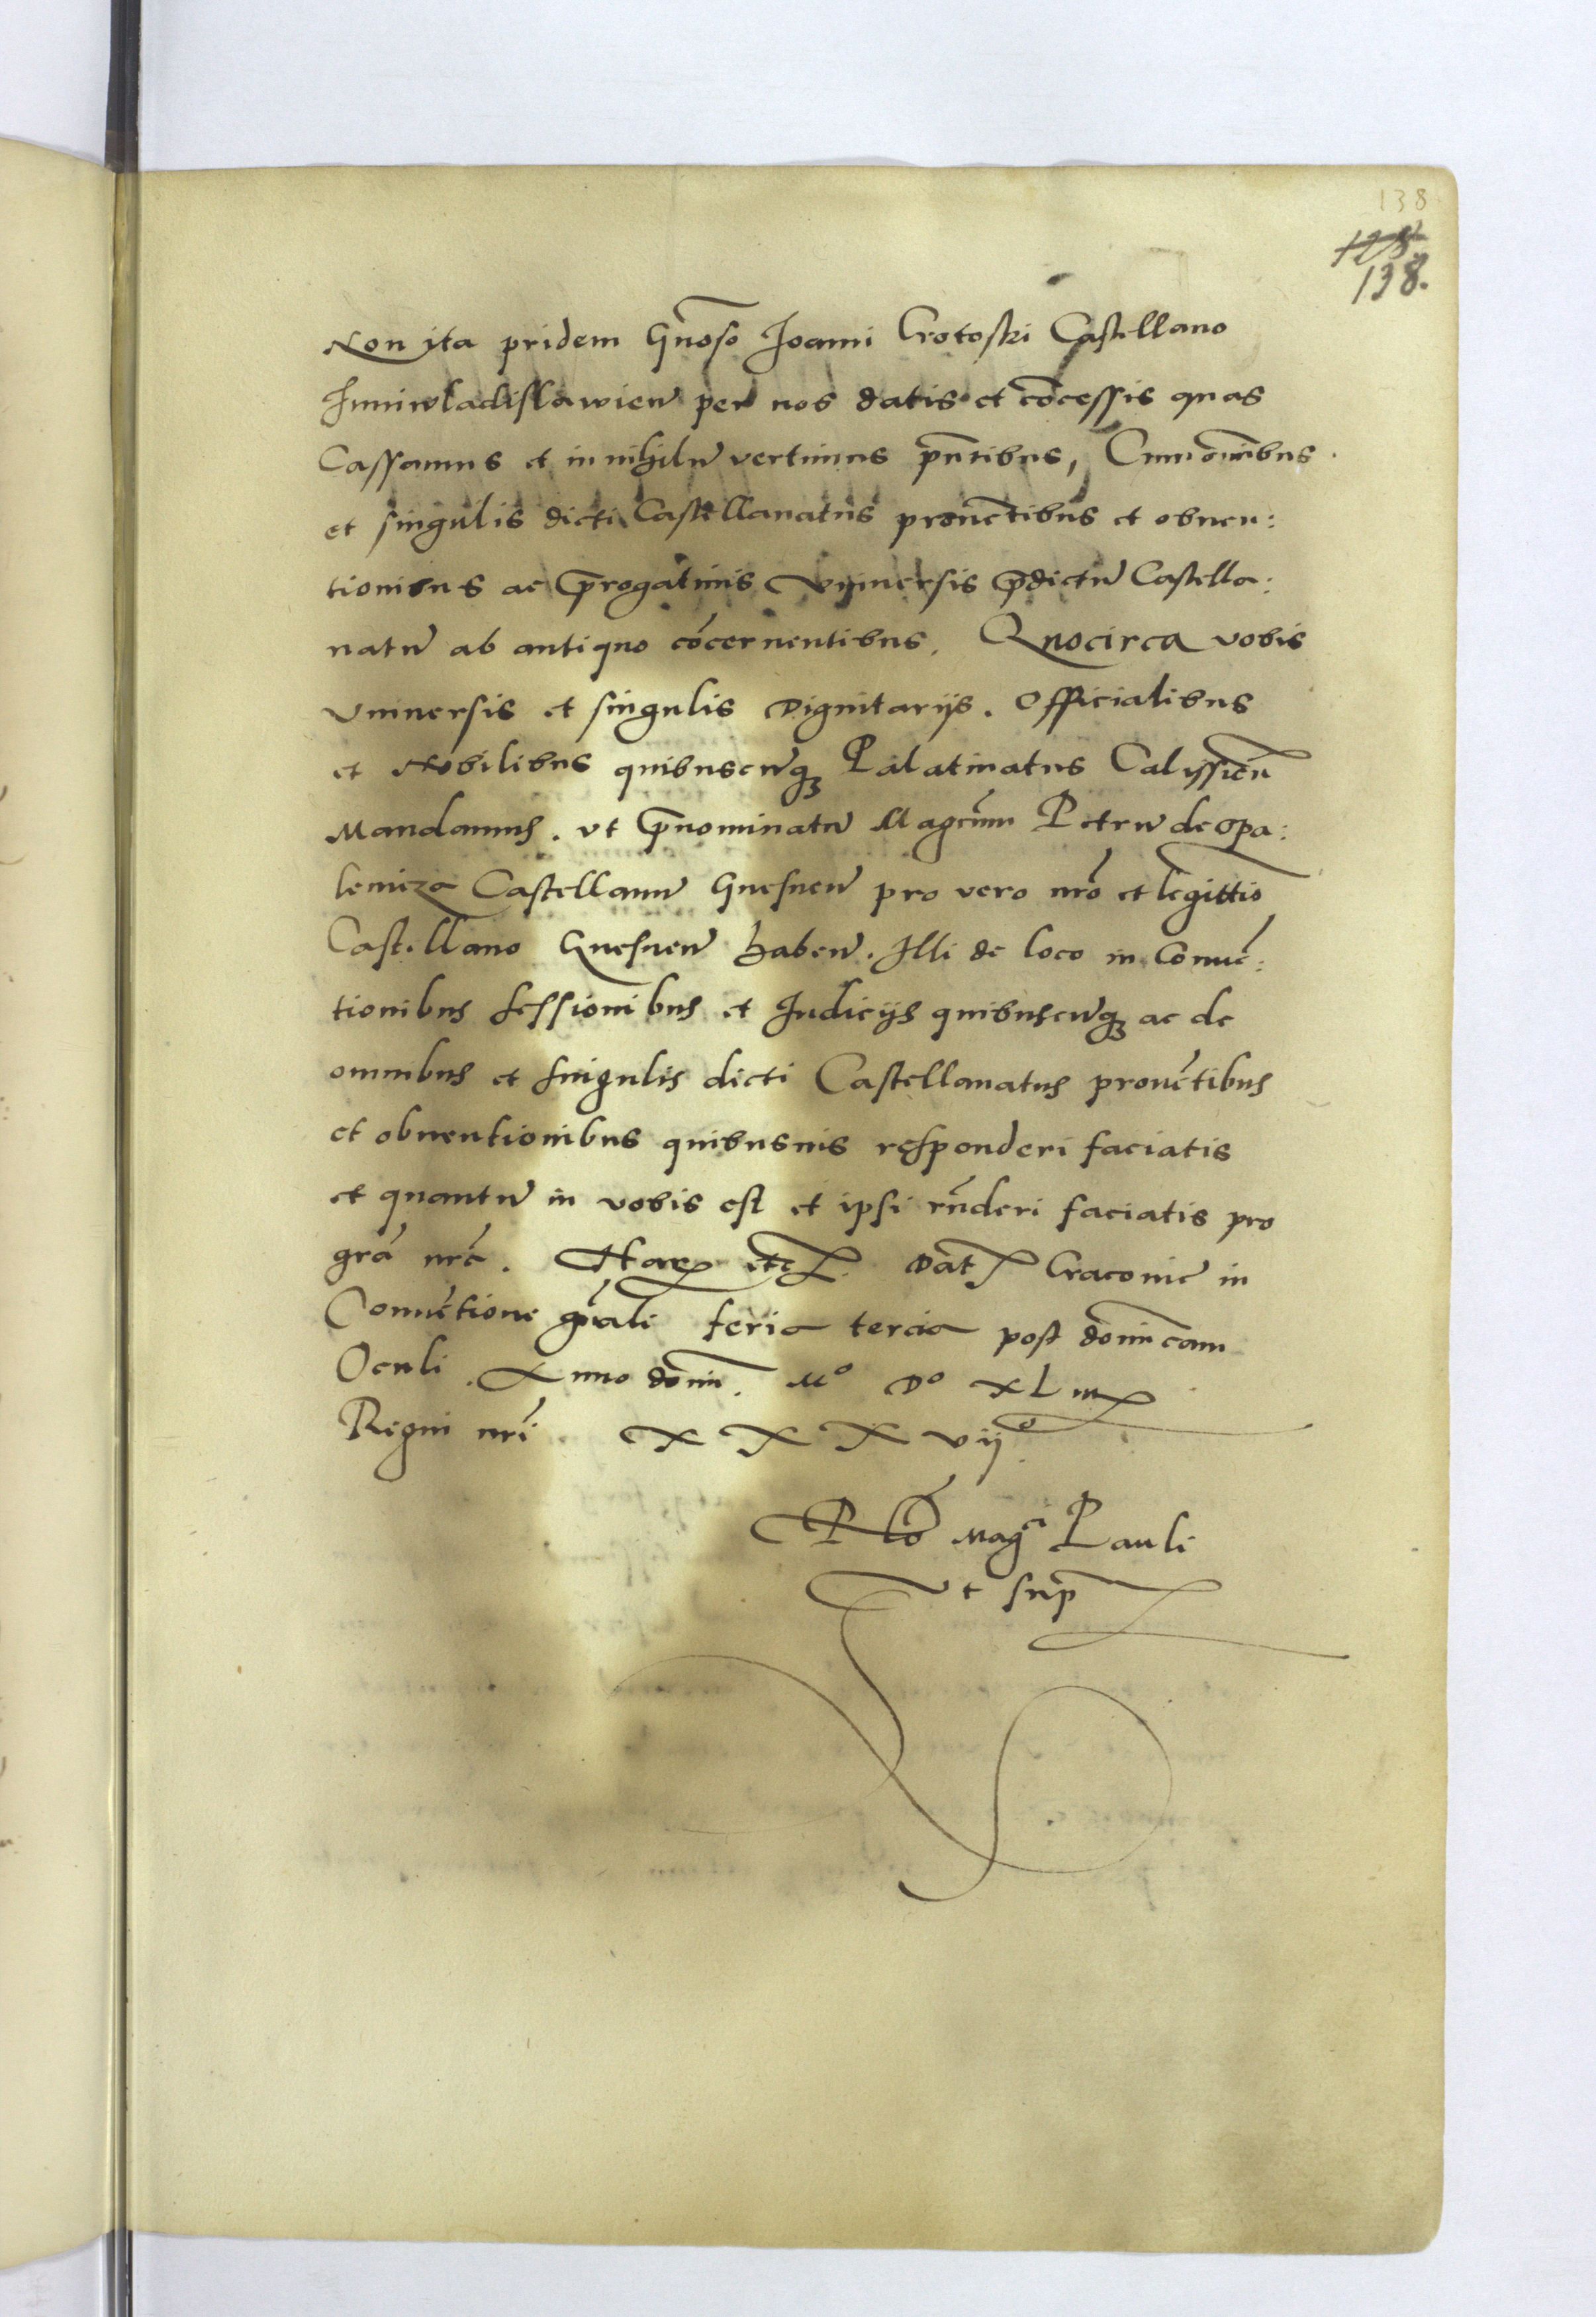 138
128
138.
Non ita pridem Gnōso Joanni Crotoski Castellano
Juniwladislawien̄ per nos datis et cōcessis quas
Cassamus et in nihilū vertimus pn̄tibus, Cum oīnibus
et singulis dicti Castellanatus prouētibus et obuen:
tionibus ac p̄rogatiuis Vniuersis p̄dictū Castella:
natū ab antiquo cōcernentibus. Quocirca vobis
Vniuersis et singulis Dignitarijs. Officialibus
et Nobilibus quibuscūq₃ Palatinatus Calissień
Mandamus. vt p̄nominatū Magcūm Petrū de Opa:
lenicza Castellanū Gnesnen̄ pro vero nrō et legittīo
Castellano Gnesnen̄ haben̄. Illi de loco in Conuē:
tionibus sessionibus et Iudicijs quibuscūq₃ ac de
omnibus et singulis dicti Castellanatus prouētibus
et obuentionibus quibusuis responderi faciatis
et quantū in vobis est et ipsi rn̄deri faciatis pro
grā nrā. Harȝ etc. Dat Cracouie in
Conuētione gn̄ali feria tercia post domīcam
Oculi. Anno domī. Mᵒ Dᵒ XLiiiᵒ
Regni nrī XXXviiᵒ
Rlō Magᶜⁱ Pauli
Vt supᵃ